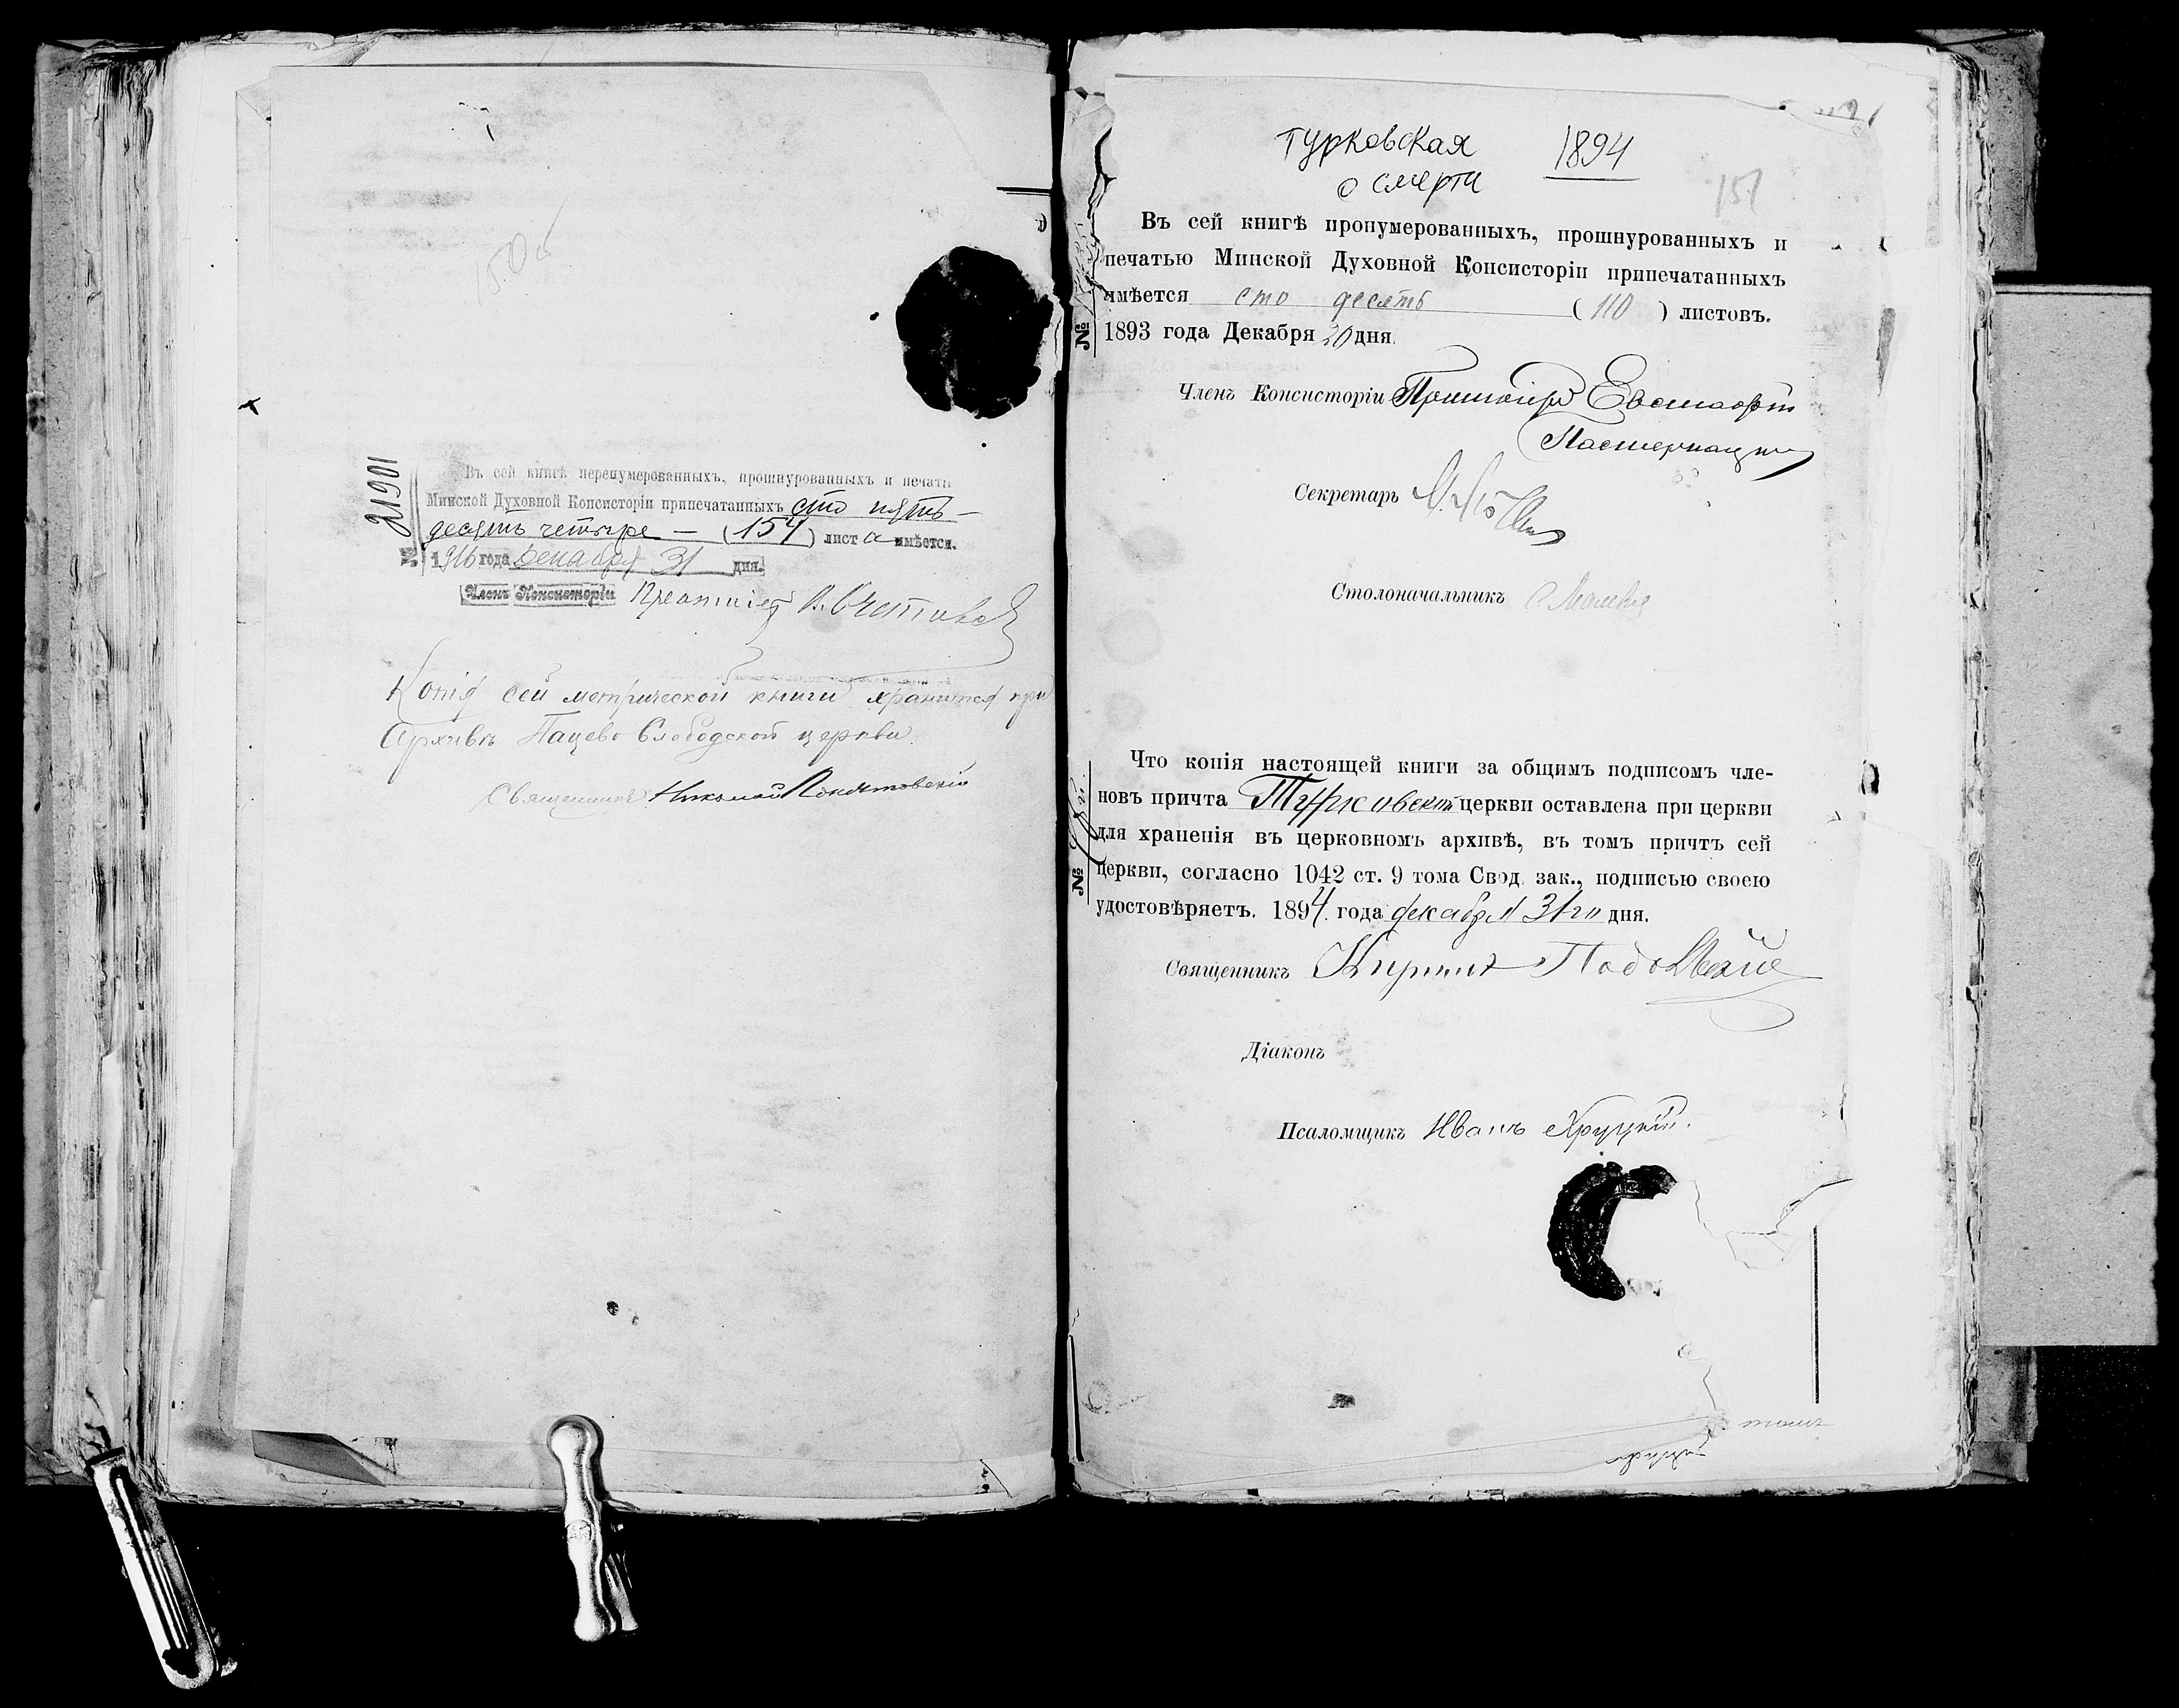 150об
№ 21901
Въ сей книгѣ перенумерованныхъ, прошнурованныхъ и печатью
Минской Духовной Консисторіи припечатанныхъ сто пять-
десять четыре — (154) листа имѣется.
1916 года Декабря 31 дня.
Членъ Консисторіи Протоіерей
Копія сей метрической книги хранится при
Архивѣ Пацево Слободской церкви.
Священникъ Николай
Турковская 1894
о смерти
151
Въ сей книгѣ пронумерованныхъ, прошнурованныхъ и
печатью Минской Духовной Консисторіи припечатанныхъ
имѣется сто десять (110) листовъ.
1893 года Декабря 20 дня.
№
Членъ Консисторіи Протоіерей Евстафій
Секретарь
Столоначальникъ
Что копія настоящей книги за общимъ подписомъ чле-
новъ причта Турковской церкви оставлена при церкви
для храненія въ церковномъ архивѣ, въ томъ причтъ сей
церкви, согласно 1042 ст. 9 тома Свод. зак., подписью своею
удостовѣряетъ. 1894 года декабря 31го дня.
№
Священникъ Кириллъ
Діаконъ
Псаломщикъ Иванъ Хруцкій.